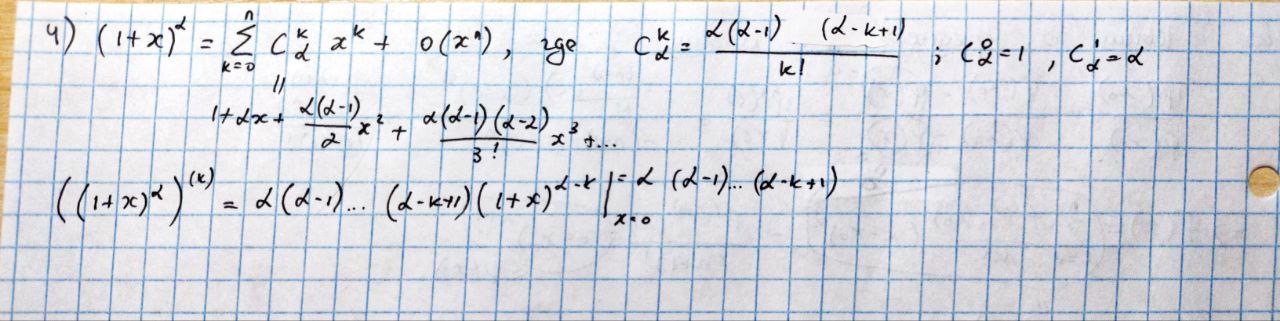 4) (1+x)^α = ∑_{k=0}^{n} C_α^k x^k + o(x^n), где C_α^k = α(α-1) (α-k+1) / k! ; C_α^0=1, C_α^1=α
||
1+αx+ α(α-1)/2 x^2 + α(α-1)(α-2)/3! x^3 +...
((1+x)^α)^(k) = α(α-1)... (α-k+1)(1+x)^{α-k} |_{x=0} = α (α-1)... (α-k+1)